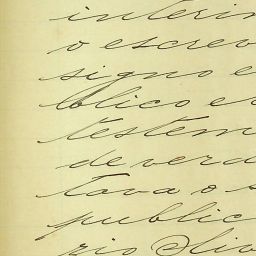 interin
o escrev
signo e
blico e
testem
de verd
tava o s
public
rio Oliv